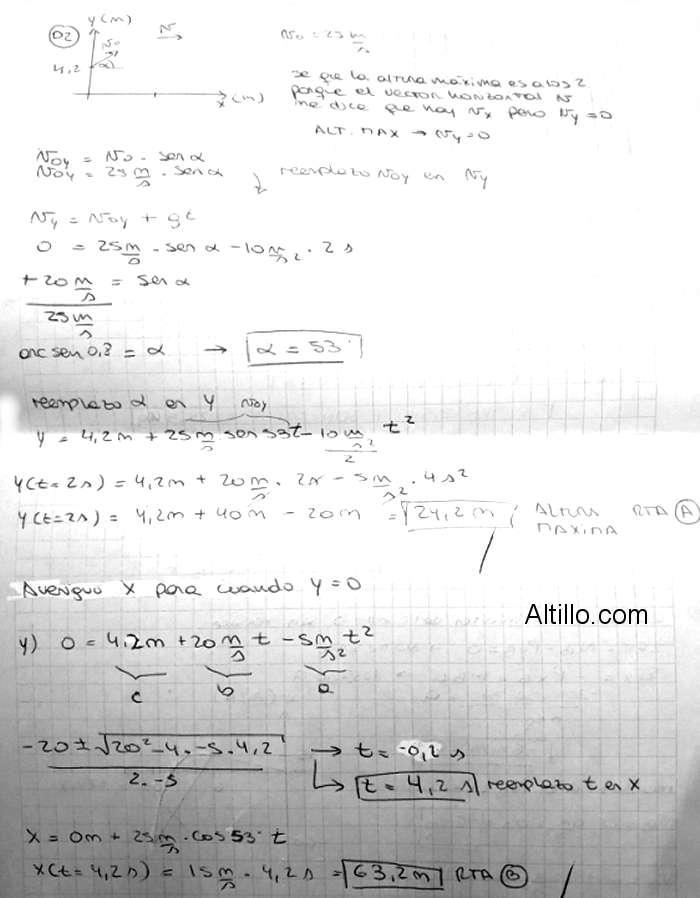 D2 y(m) v v₀ = 25 m/s
v₀
4,2 α
x(m)
se que la altura máxima es a los 2
porque el vector horizontal v
me dice que hay vx pero vy = 0
ALT. MAX → vy = 0
v₀y = v₀ · sen α
v₀y = 25 m/s · sen α reemplazo v₀y en vy
vy = v₀y + gt
0 = 25 m/s · sen α - 10 m/s² · 2 s
+ 20 m/s / 25 m/s = sen α
arc sen 0,8 = α → α = 53°
reemplazo α en y v₀y
y = 4,2m + 25 m/s sen 53 t - 10 m/s² / 2 t²
y(t=2s) = 4,2m + 20 m/s · 2s - 5 m/s² · 4s²
y(t=2s) = 4,2m + 40m - 20m = 24,2m ALTURA MAXIMA RTA A
Averiguo x para cuando y = 0
Altillo.com
y) 0 = 4,2m + 20 m/s t - 5 m/s² t²
c b a
-20 ± √20² - 4 · -5 · 4,2 / 2 · -5 → t = -0,2 s
→ t = 4,2 s reemplazo t en x
x = 0m + 25 m/s · cos 53° t
x(t=4,2s) = 15 m/s · 4,2s = 63,2m RTA B